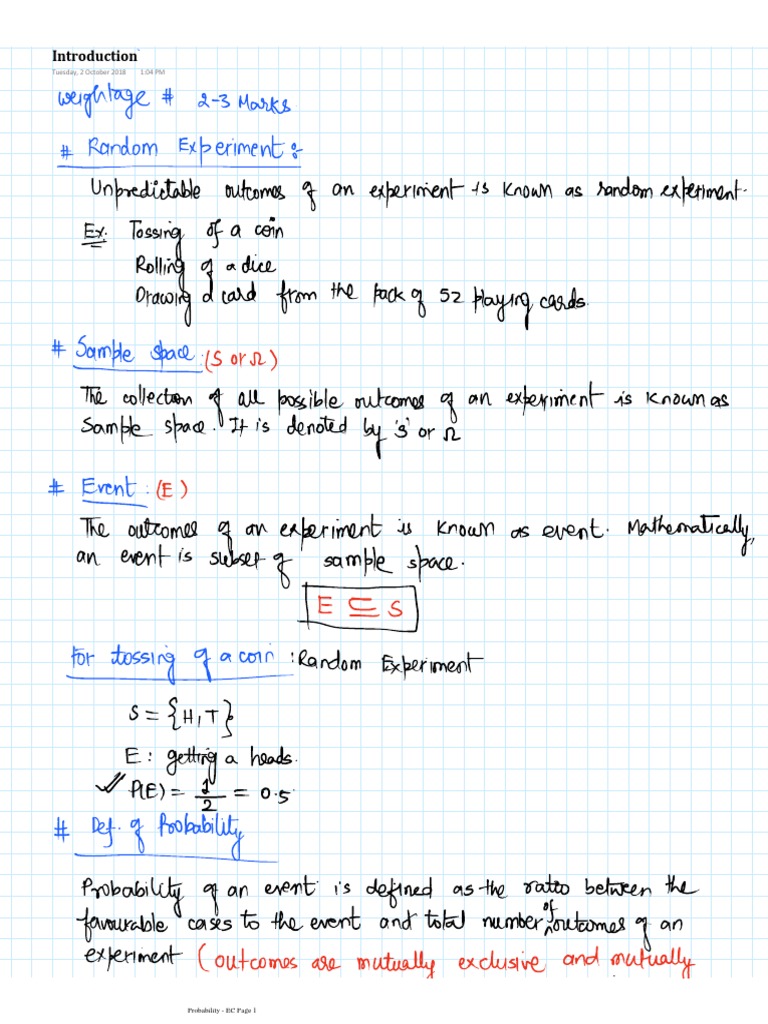 Introduction
Tuesday, 2 October 2018 1:04 PM
Weightage # 2-3 Marks
# Random Experiment :-
Unpredictable outcomes of an experiment is known as random experiment.
Ex: Tossing of a coin
Rolling of a dice
Drawing a card from the pack of 52 playing cards.
# Sample space : (S or Ω)
The collection of all possible outcomes of an experiment is known as
Sample space. It is denoted by 'S' or Ω
# Event : (E)
The outcomes of an experiment is known as event. Mathematically,
an event is subset of sample space.
E ⊆ S
For tossing of a coin : Random Experiment
S = {H, T}
E : getting a heads.
P(E) = 1/2 = 0.5
# Def. of Probability
Probability of an event is defined as the ratio between the
favourable cases to the event and total number of outcomes of an
experiment (outcomes are mutually exclusive and mutually
Probability - EC Page 1